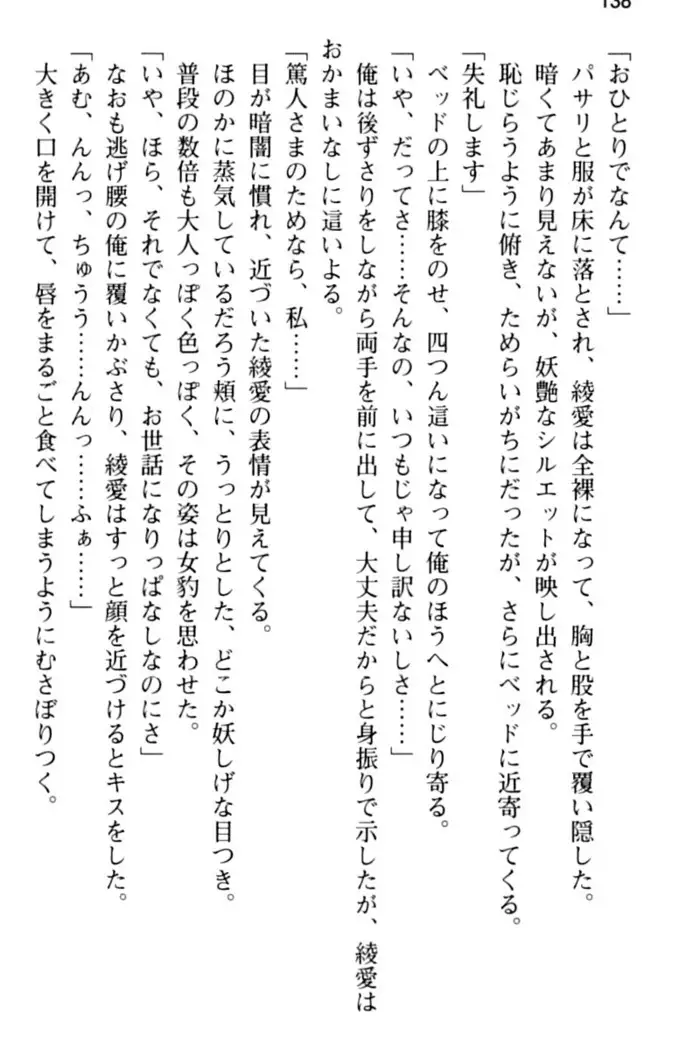 138
「おひとりでなんて……」
パサリと服が床に落とされ、綾愛は全裸になって、胸と股を手で覆い隠した。
暗くてあまり見えないが、妖艶なシルエットが映し出される。
恥じらうように俯き、ためらいがちにだったが、さらにベッドに近寄ってくる。
「失礼します」
ベッドの上に膝をのせ、四つん這いになって俺のほうへとにじり寄る。
「いや、だってさ……そんなの、いつもじゃ申し訳ないしさ……」
俺は後ずさりをしながら両手を前に出して、大丈夫だからと身振りで示したが、綾愛は
おかまいなしに這いよる。
「篤人さまのためなら、私……」
目が暗闇に慣れ、近づいた綾愛の表情が見えてくる。
ほのかに蒸気しているだろう頬に、うっとりとした、どこか妖しげな目つき。
普段の数倍も大人っぽく色っぽく、その姿は女豹を思わせた。
「いや、ほら、それでなくても、お世話になりっぱなしなのにさ」
なおも逃げ腰の俺に覆いかぶさり、綾愛はすっと顔を近づけるとキスをした。
「あむ、んんっ、ちゅうう……んんっ……ふぁ……」
大きく口を開けて、唇をまるごと食べてしまうようにむさぼりつく。